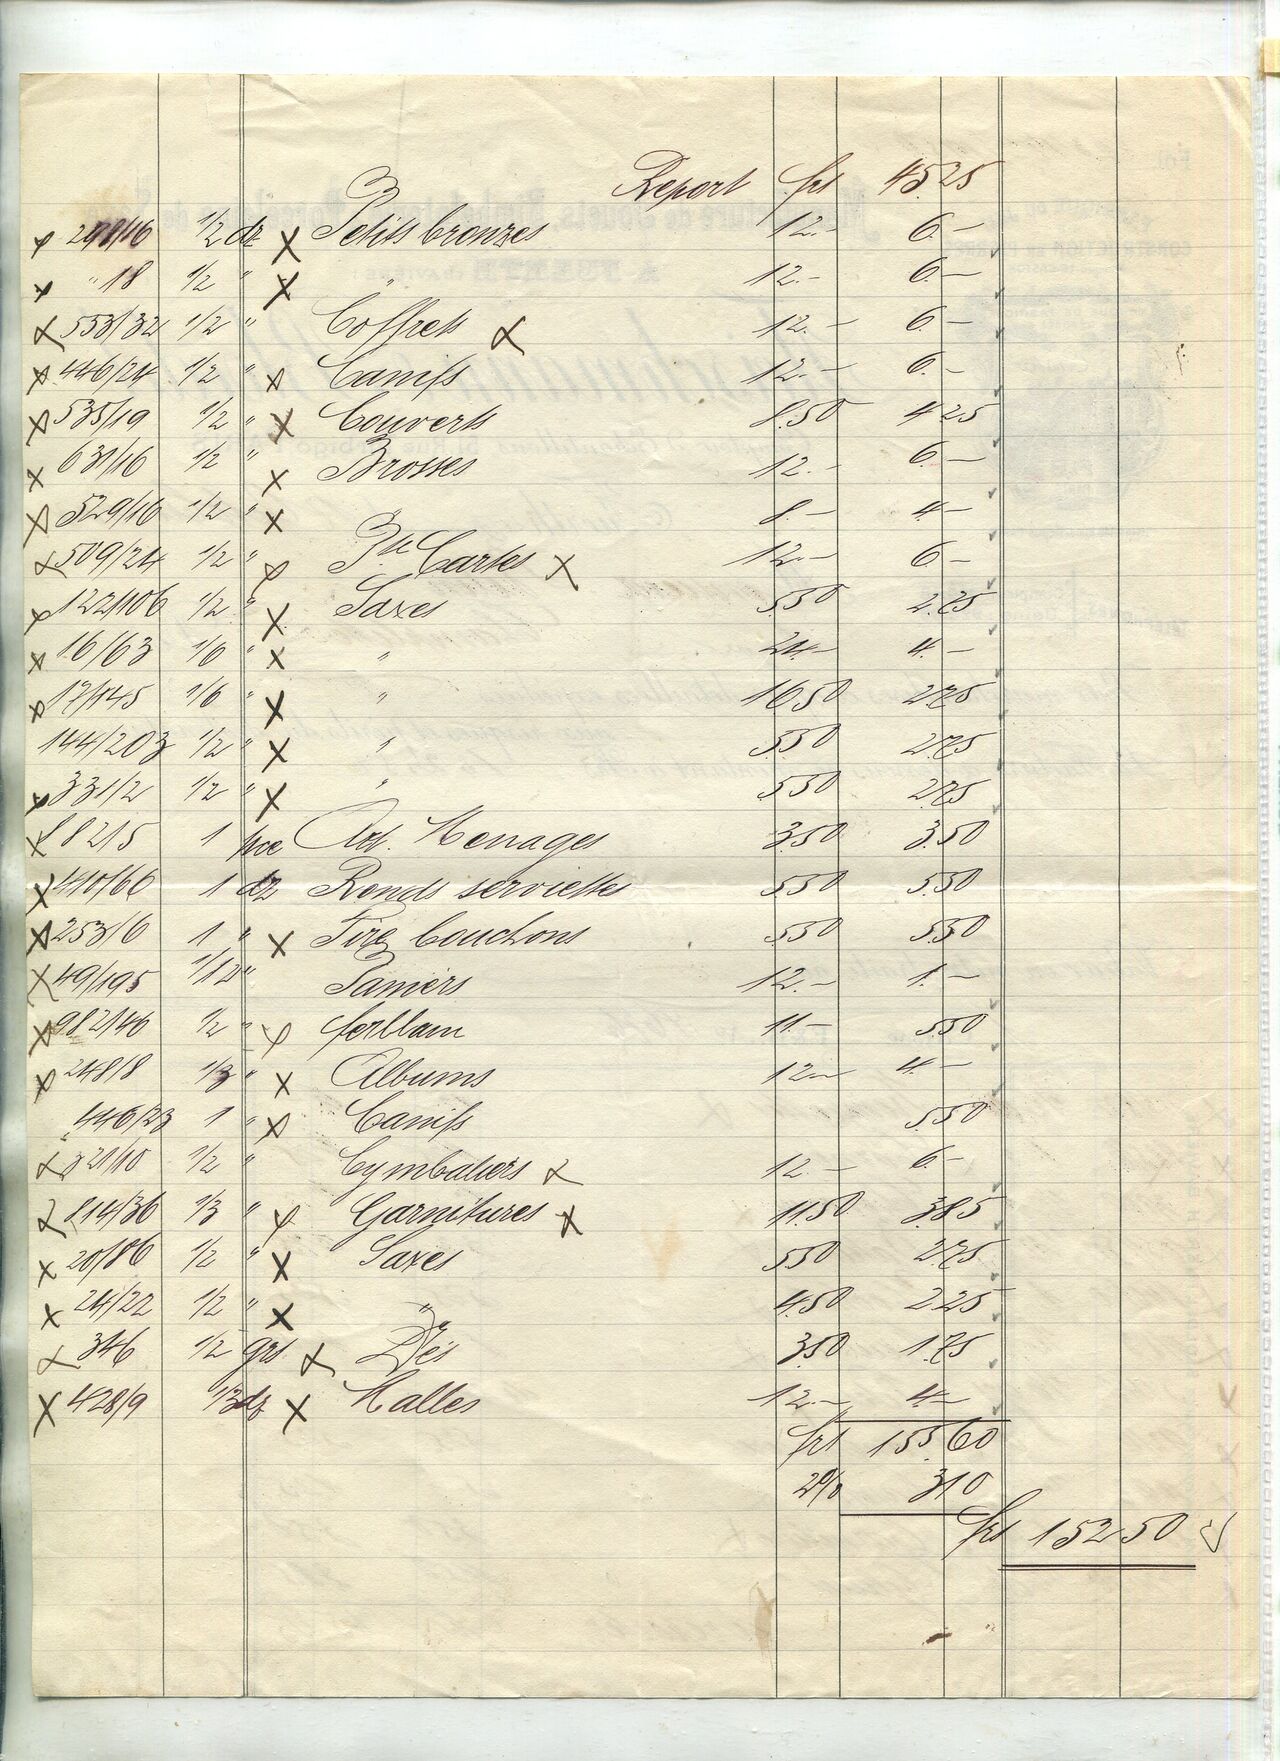 Report frs 45.25
298/16 1/2 dz Petits bronzes 12.- 6.-
" 18 1/2 " " 12.- 6.-
553/32 1/2 " Coffrets 12.- 6.-
446/24 1/2 " Canifs 12.- 6.-
535/19 1/2 " Couverts 8.50 4.25
631/16 1/2 " Brosses 12.- 6.-
529/16 1/2 " 8.- 4.-
509/24 1/2 " Pte Cartes 12.- 6.-
122/106 1/2 " Saxes 5.50 2.75
16/63 1/6 " " 24.- 4.-
17/145 1/6 " " 16.50 2.75
144/203 1/2 " " 5.50 2.75
331/2 1/2 " " 5.50 2.75
882/5 1 pce Art. Menages 3.50 3.50
410/66 1 dz Ronds serviettes 5.50 5.50
253/6 1 " Tire bouchons 5.50 5.50
49/195 1/12 " Paniers 12.- 1.-
982/46 1/2 " ferblam 11.- 5.50
248/8 1/3 " Albums 12.- 4.-
446/23 1 " Canifs 5.50
321/10 1/2 " Cymbaliers 12.- 6.-
814/36 1/3 " Garnitures 11.50 3.85
20/86 1/2 " Saxes 5.50 2.75
24/22 1/2 " " 4.50 2.25
346 1/2 grs Dés 3.50 1.75
428/9 1/3 dz Malles 12.- 4.-
frs 155.60
2% 3.10
frs 152.50